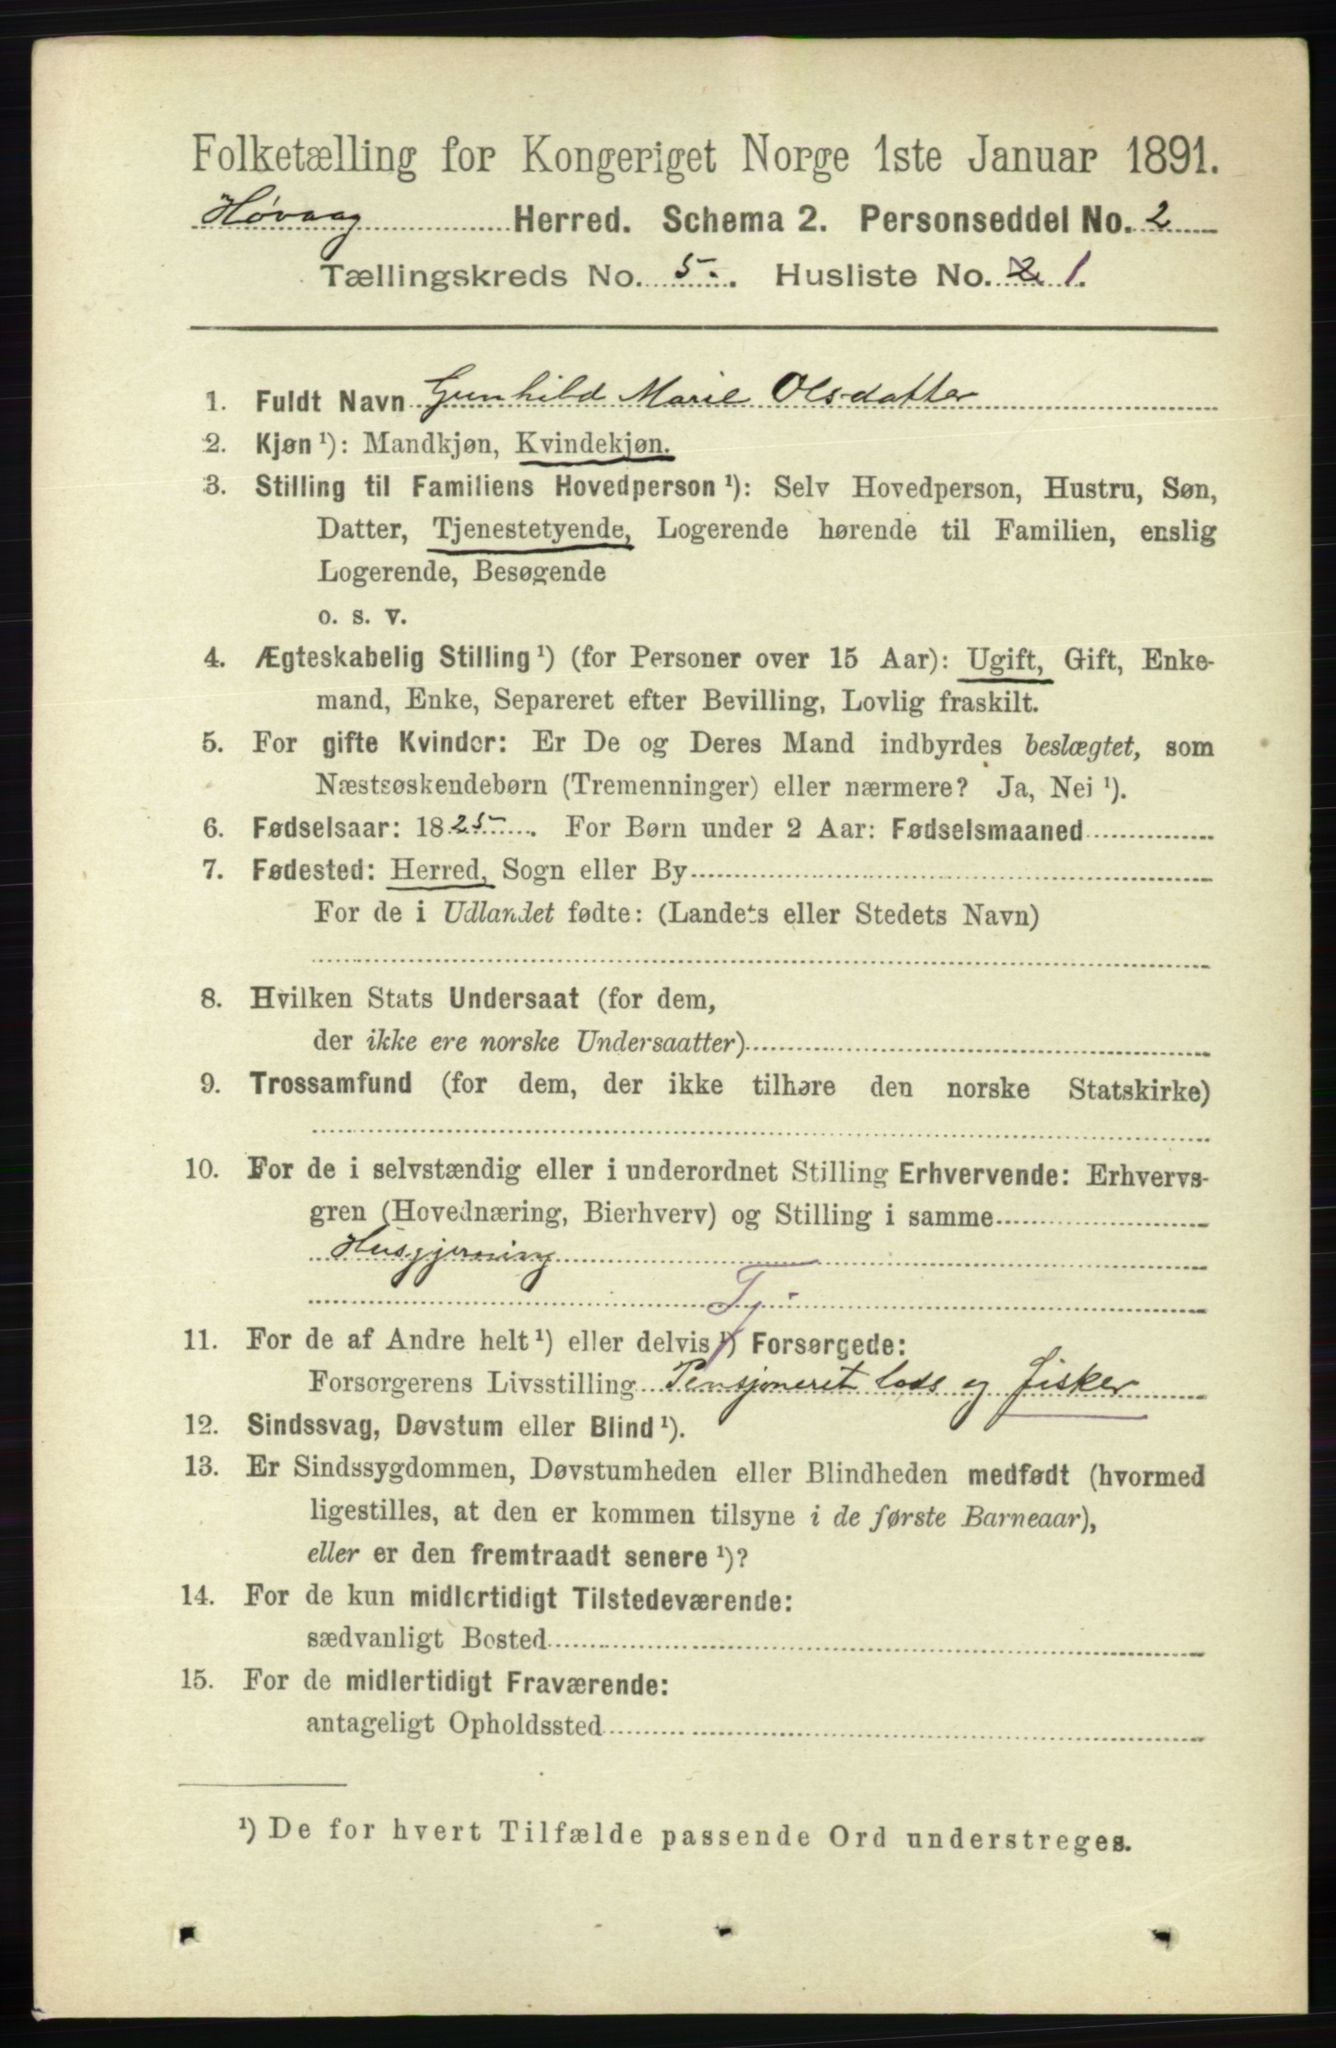 Folketælling for Kongeriget Norge 1ste Januar 1891.
Høvaag Herred. Schema 2. Personseddel No. 2
Tællingskreds No. 5. Husliste No. 2 1.
1. Fuldt Navn Gunhild Marie Olsdatter
2. Kjøn ¹): Mandkjøn, Kvindekjøn.
3. Stilling til Familiens Hovedperson ¹): Selv Hovedperson, Hustru, Søn,
Datter, Tjenestetyende, Logerende hørende til Familien, enslig
Logerende, Besøgende
o. s. v.
4. Ægteskabelig Stilling ¹) (for Personer over 15 Aar): Ugift, Gift, Enke-
mand, Enke, Separeret efter Bevilling, Lovlig fraskilt.
5. For gifte Kvinder: Er De og Deres Mand indbyrdes beslægtet, som
Næstsøskendebørn (Tremenninger) eller nærmere? Ja, Nei ¹).
6. Fødselsaar: 1825. For Børn under 2 Aar: Fødselsmaaned
7. Fødested: Herred, Sogn eller By
For de i Udlandet fødte: (Landets eller Stedets Navn)
8. Hvilken Stats Undersaat (for dem,
der ikke ere norske Undersaatter)
9. Trossamfund (for dem, der ikke tilhøre den norske Statskirke)
10. For de i selvstændig eller i underordnet Stilling Erhvervende: Erhvervs-
gren (Hovednæring, Bierhverv) og Stilling i samme
Husgjerning
Tj.
11. For de af Andre helt ¹) eller delvis ¹) Forsørgede:
Forsørgerens Livsstilling Pensjoneret lods og fisker
12. Sindssvag, Døvstum eller Blind ¹).
13. Er Sindssygdommen, Døvstumheden eller Blindheden medfødt (hvormed
ligestilles, at den er kommen tilsyne i de første Barneaar),
eller er den fremtraadt senere ¹)?
14. For de kun midlertidigt Tilstedeværende:
sædvanligt Bosted
15. For de midlertidigt Fraværende:
antageligt Opholdssted
¹) De for hvert Tilfælde passende Ord understreges.